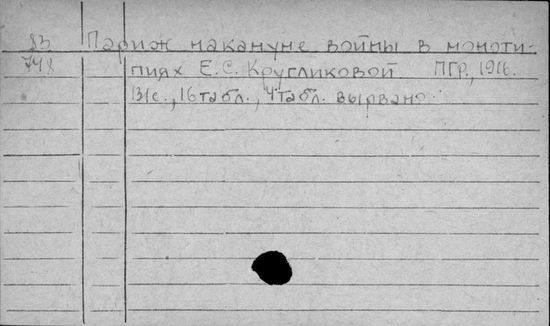 83 Париж накануне войны в моноти-
748 пиях Е.С. Кругликовой ПГР., 1916.
131с., 16 табл., 4 табл. вырвано.